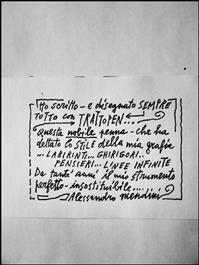 Ho scritto - e disegnato SEMPRE
TUTTO con TRATTOPEN...
Questa nobile penna - che ha
dettato lo STILE della mia grafia
... LABIRINTI... GHIRIGORI..
PENSIERI... LINEE INFINITE
Da tant' anni il mio strumento
perfetto - insostituibile.....
Alessandro Mendini